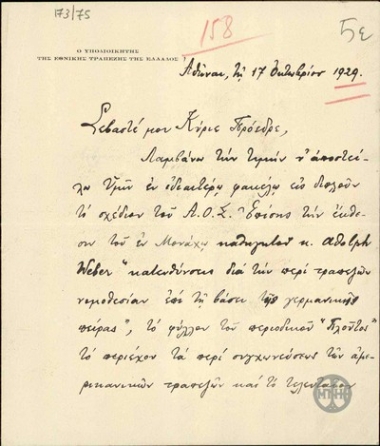 173/75
158
5ε
Ο ΥΠΟΔΙΟΙΚΗΤΗΣ
ΤΗΣ ΕΘΝΙΚΗΣ ΤΡΑΠΕΖΗΣ ΤΗΣ ΕΛΛΑΔΟΣ
Ἀθῆναι, τῇ 17 Ὀκτωβρίου 1929.
Σεβαστέ μου Κύριε Πρόεδρε,
Λαμβάνω τὴν τιμὴν ν' ἀποστεί-
λω Ὑμῖν ἐν ἰδιαιτέρῳ φακέλῳ εἰς διπλοῦν
τὸ σχέδιον τοῦ Α.Ο.Σ. Ἐπίσης τὴν ἔκθε-
σιν τοῦ ἐν Μονάχῳ καθηγητοῦ κ. Adolph
Weber "κατευθύνσεις διὰ τὴν περὶ τραπεζῶν
νομοθεσίαν ἐπὶ τῇ βάσει τῆς γερμανικῆς
πείρας", τὸ φύλλον τοῦ περιοδικοῦ "Πλοῦτος"
τὸ περιέχον τὰ περὶ συγχωνεύσεως τῶν ἀμε-
ρικανικῶν τραπεζῶν καὶ τὸ τελευταῖον